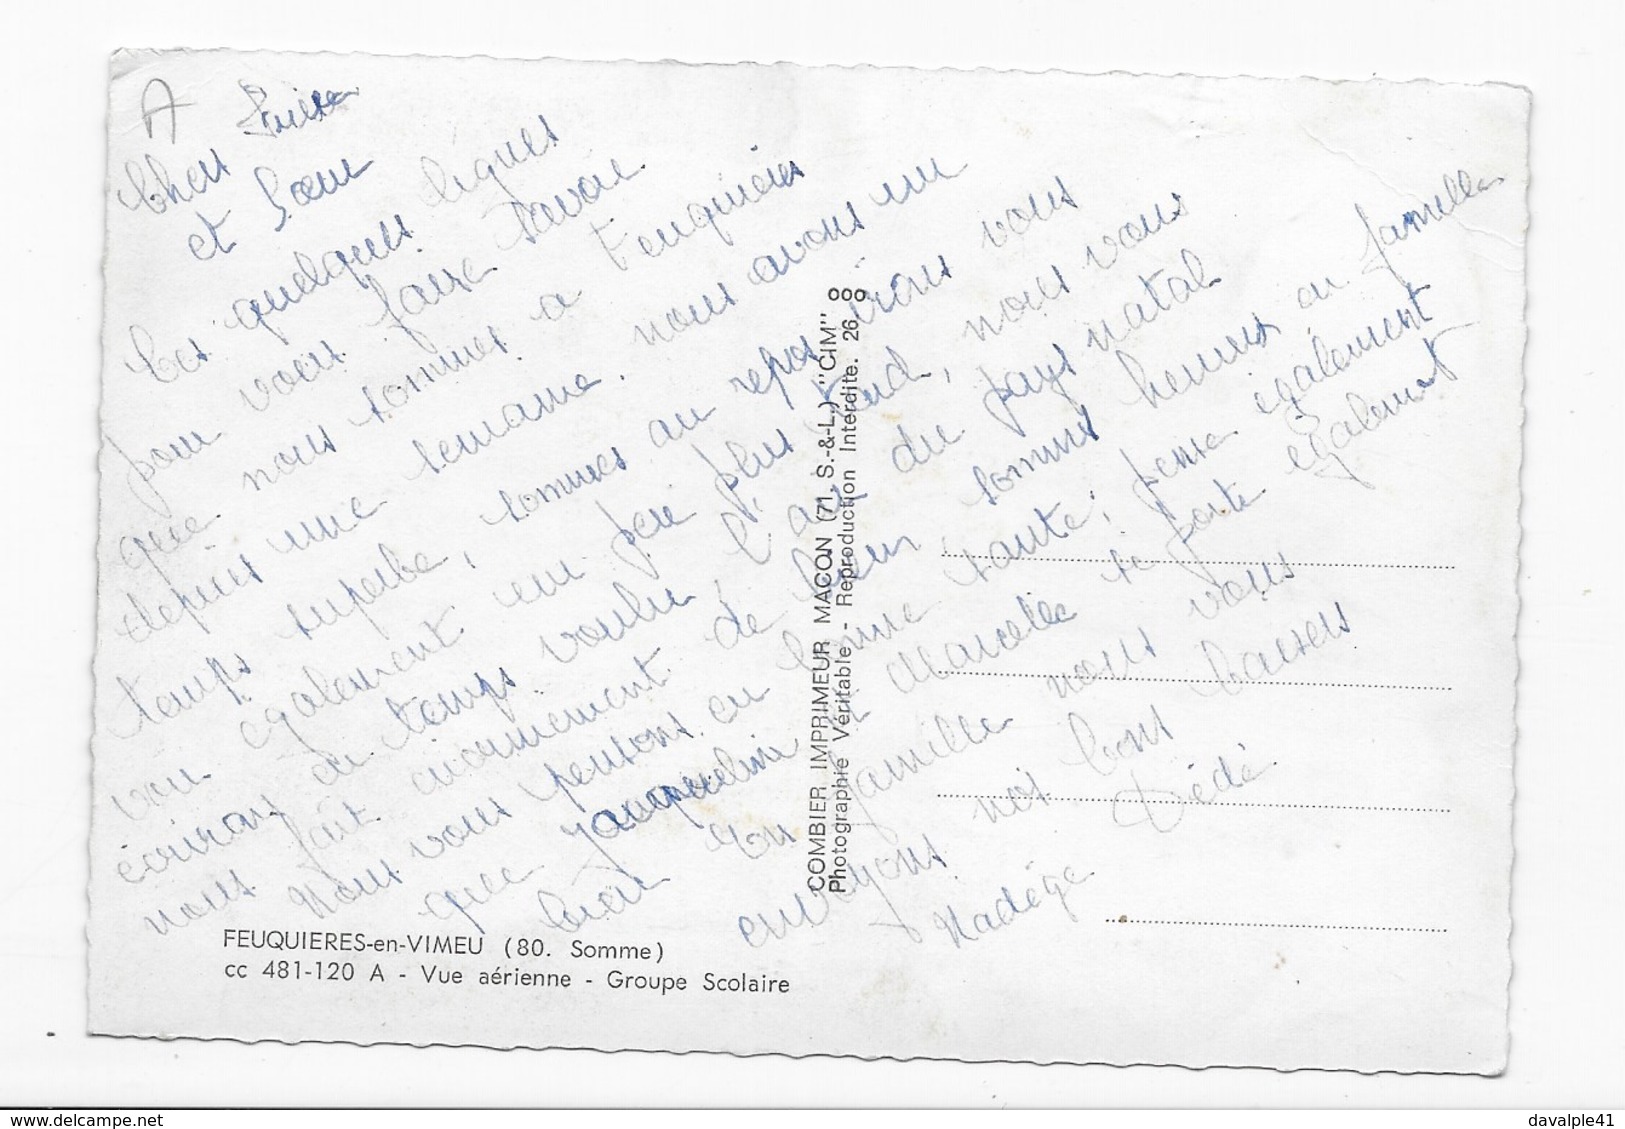 A
Cher Frère
et Sœur
Ces quelques lignes
pour vous faire savoir
que nous sommes a Feuquières
depuis une semaine. nous avons un
temps superbe, sommes au repos irons vous
voir également un peu plus tard, nous vous
écrirons en temps voulu, l'air du pays natal
nous fait énormément de bien sommes heureux en famille
Nous vous pensons en bonne santé, pense également
que Jacqueline et Marcelle se porte également
bien en famille nous vous
envoyons nos bons baisers
Nadége Dédé
FEUQUIERES-en-VIMEU (80. Somme)
cc 481-120 A - Vue aérienne - Groupe Scolaire
COMBIER IMPRIMEUR MACON (71 S.-&-L.) "CIM"
Photographie Véritable - Reproduction Interdite. 26
delcampe.net
davalple41